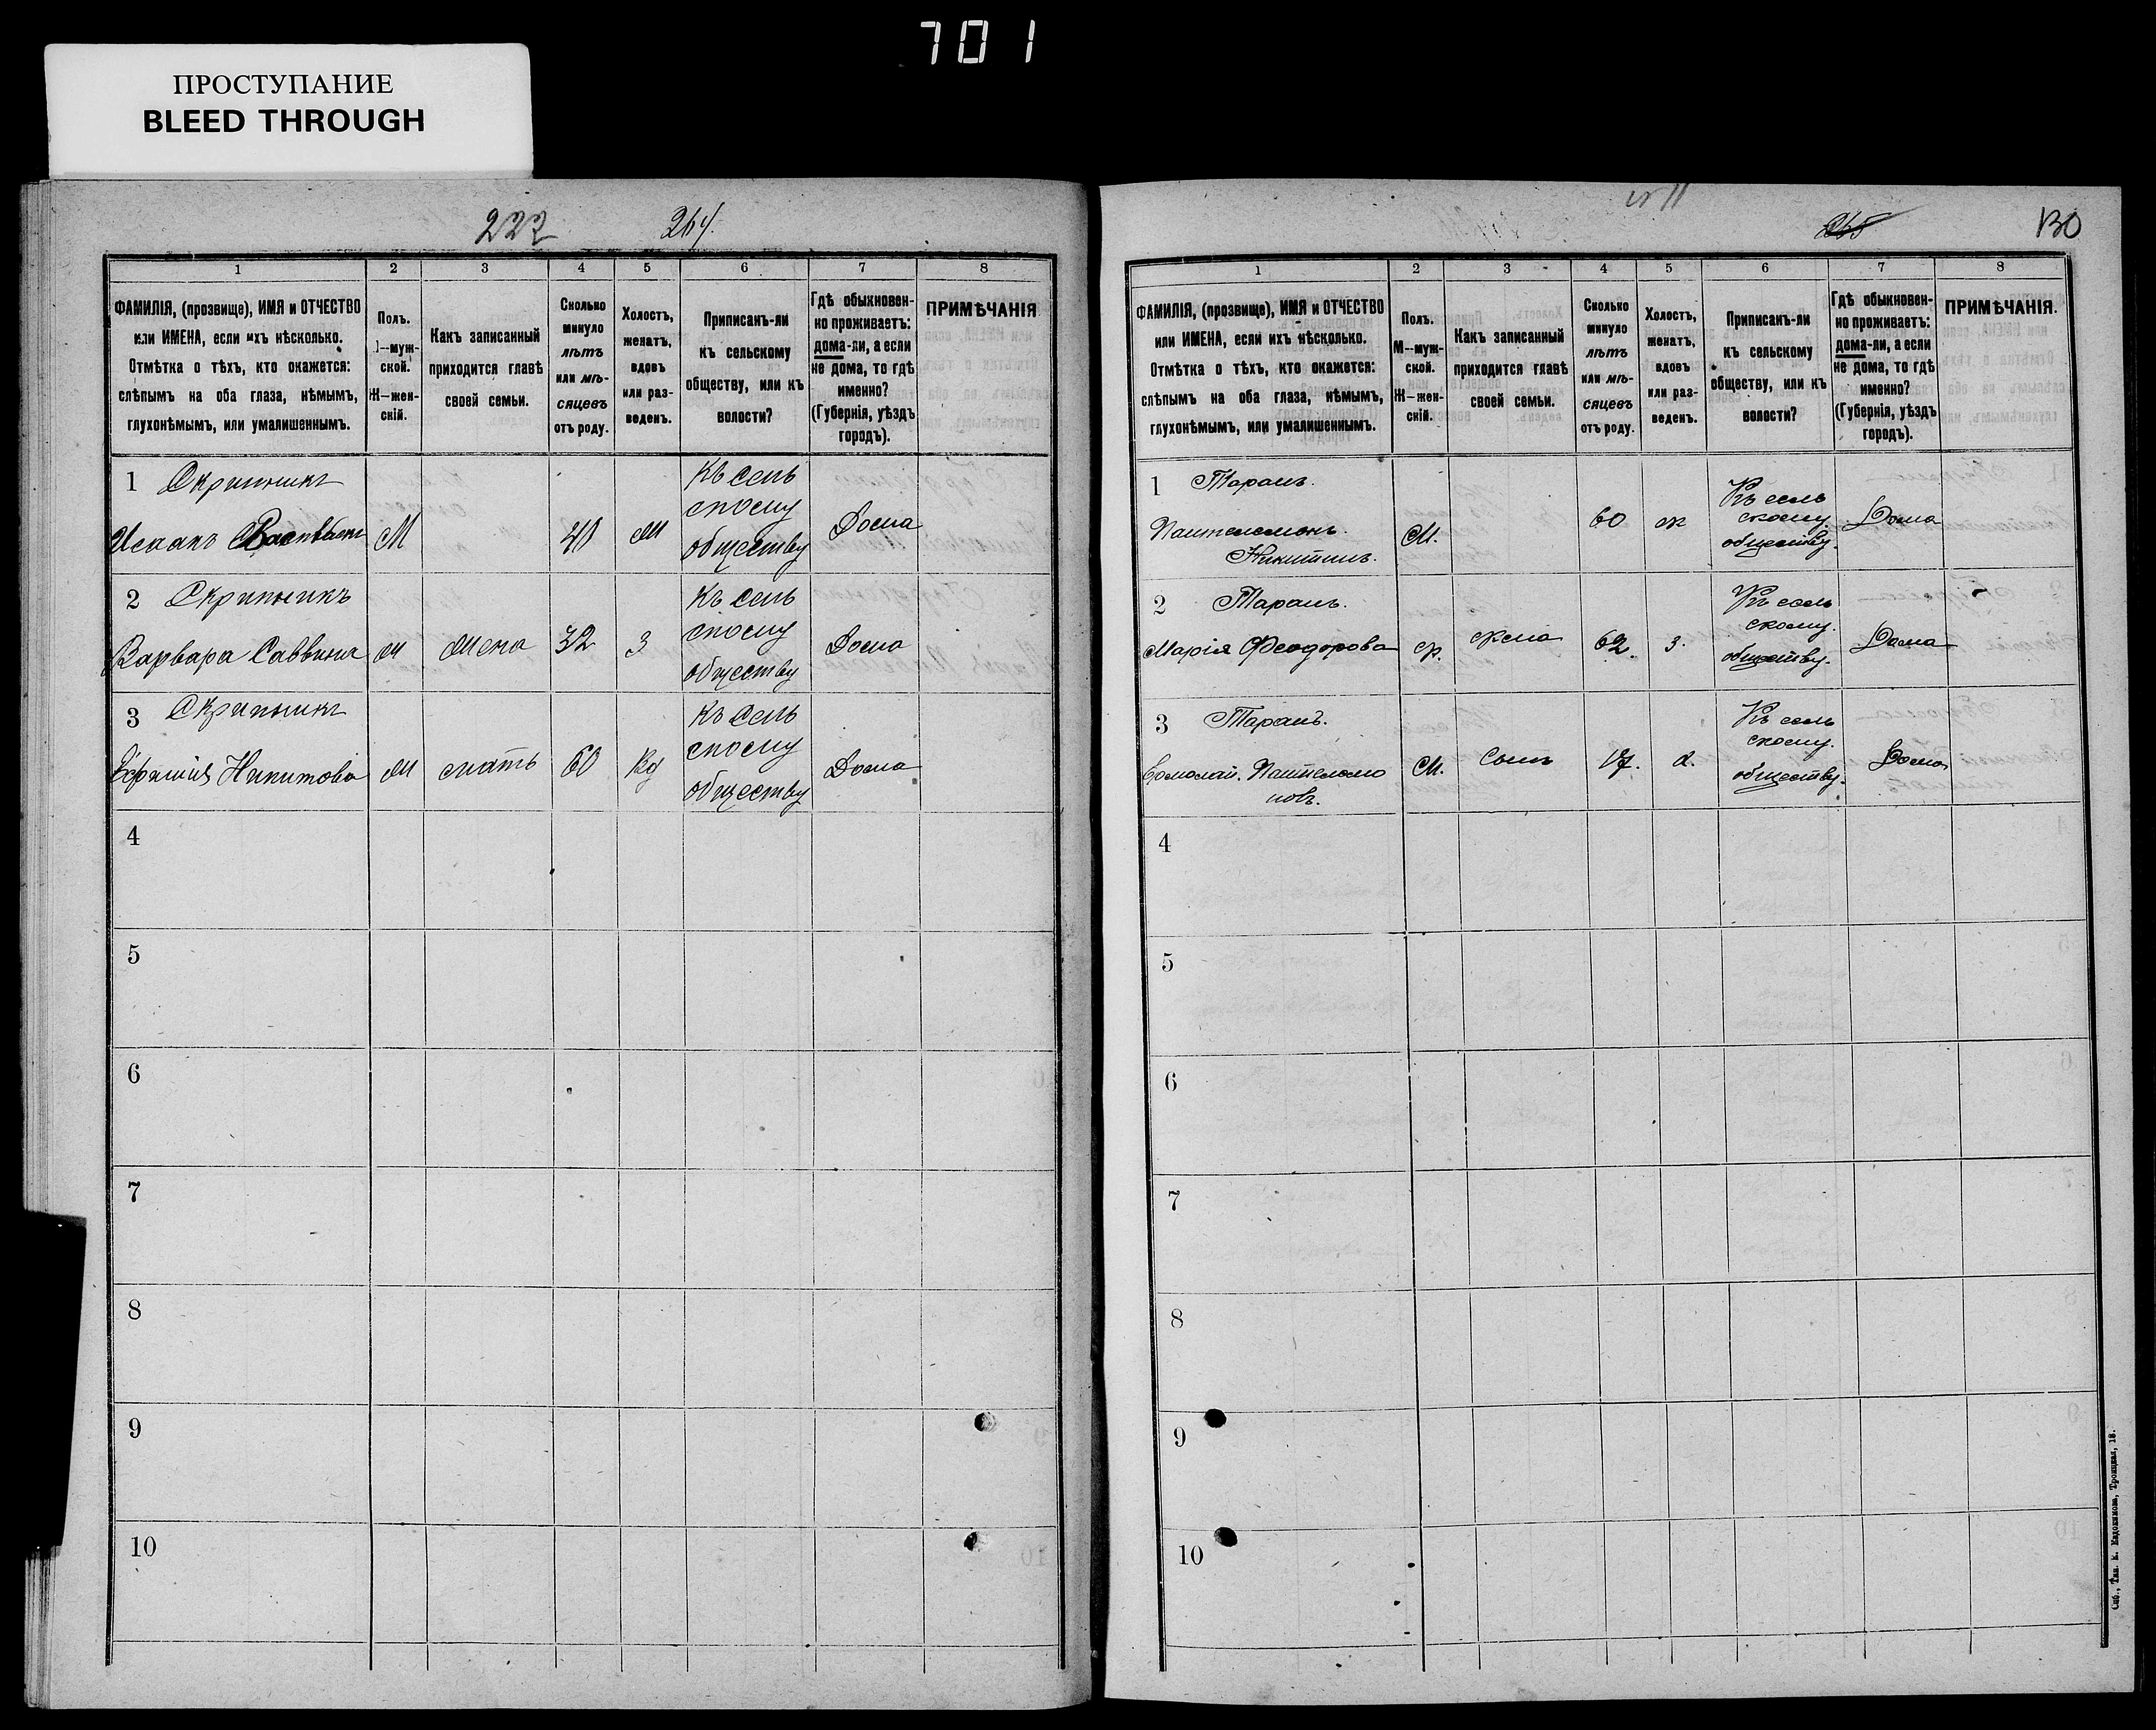 701
ПРОСТУПАНИЕ
BLEED THROUGH
222 264.
1 2 3 4 5 6 7 8
ФАМИЛІЯ, (прозвище), ИМЯ и ОТЧЕСТВО
или ИМЕНА, если ихъ нѣсколько.
Отмѣтка о тѣхъ, кто окажется:
слѣпымъ на оба глаза, нѣмымъ,
глухонѣмымъ, или умалишеннымъ.
Полъ.
М—муж-
ской.
Ж—жен-
скій.
Какъ записанный
приходится главѣ
своей семьи.
Сколько
минуло
лѣтъ
или мѣ-
сяцевъ
отъ роду.
Холостъ,
женатъ,
вдовъ
или раз-
веденъ.
Приписанъ-ли
къ сельскому
обществу, или къ
волости?
Гдѣ обыкновен-
но проживаетъ:
дома-ли, а если
не дома, то гдѣ
именно?
(Губернія, уѣздъ
городъ).
ПРИМѢЧАНІЯ
1 Скрипникъ
М 40 Ж
Къ сель
скому
обществу
Дома
2 Скрипникъ
Варвара Саввина Ж Жена 32 З
Къ сель
скому
обществу
Дома
3 Скрипникъ
Никитова Ж мать 60 Вд
Къ сель
скому
обществу
Дома
4
5
6
7
8
9
10
265 130
1 2 3 4 5 6 7 8
ФАМИЛІЯ, (прозвище), ИМЯ и ОТЧЕСТВО
или ИМЕНА, если ихъ нѣсколько.
Отмѣтка о тѣхъ, кто окажется:
слѣпымъ на оба глаза, нѣмымъ,
глухонѣмымъ, или умалишеннымъ.
Полъ.
М—муж-
ской.
Ж—жен-
скій.
Какъ записанный
приходится главѣ
своей семьи.
Сколько
минуло
лѣтъ
или мѣ-
сяцевъ
отъ роду.
Холостъ,
женатъ,
вдовъ
или раз-
веденъ.
Приписанъ-ли
къ сельскому
обществу, или къ
волости?
Гдѣ обыкновен-
но проживаетъ:
дома-ли, а если
не дома, то гдѣ
именно?
(Губернія, уѣздъ
городъ).
ПРИМѢЧАНІЯ.
1 Таранъ.
Пантелемонъ.
Никитинъ.
М. 60 ж
Къ сель
скому.
обществу.
Дома
2 Таранъ.
Марія Феодорова ж. жена 62. з.
Къ сель
скому.
обществу.
Дома
3 Таранъ.
Ермолай. Пантелемо
новъ.
М. Сынъ 17. х.
Къ сель
скому.
обществу.
Дома
4
5
6
7
8
9
10
Спб., Тип. К. Евдокимова, Троицкая, 18.